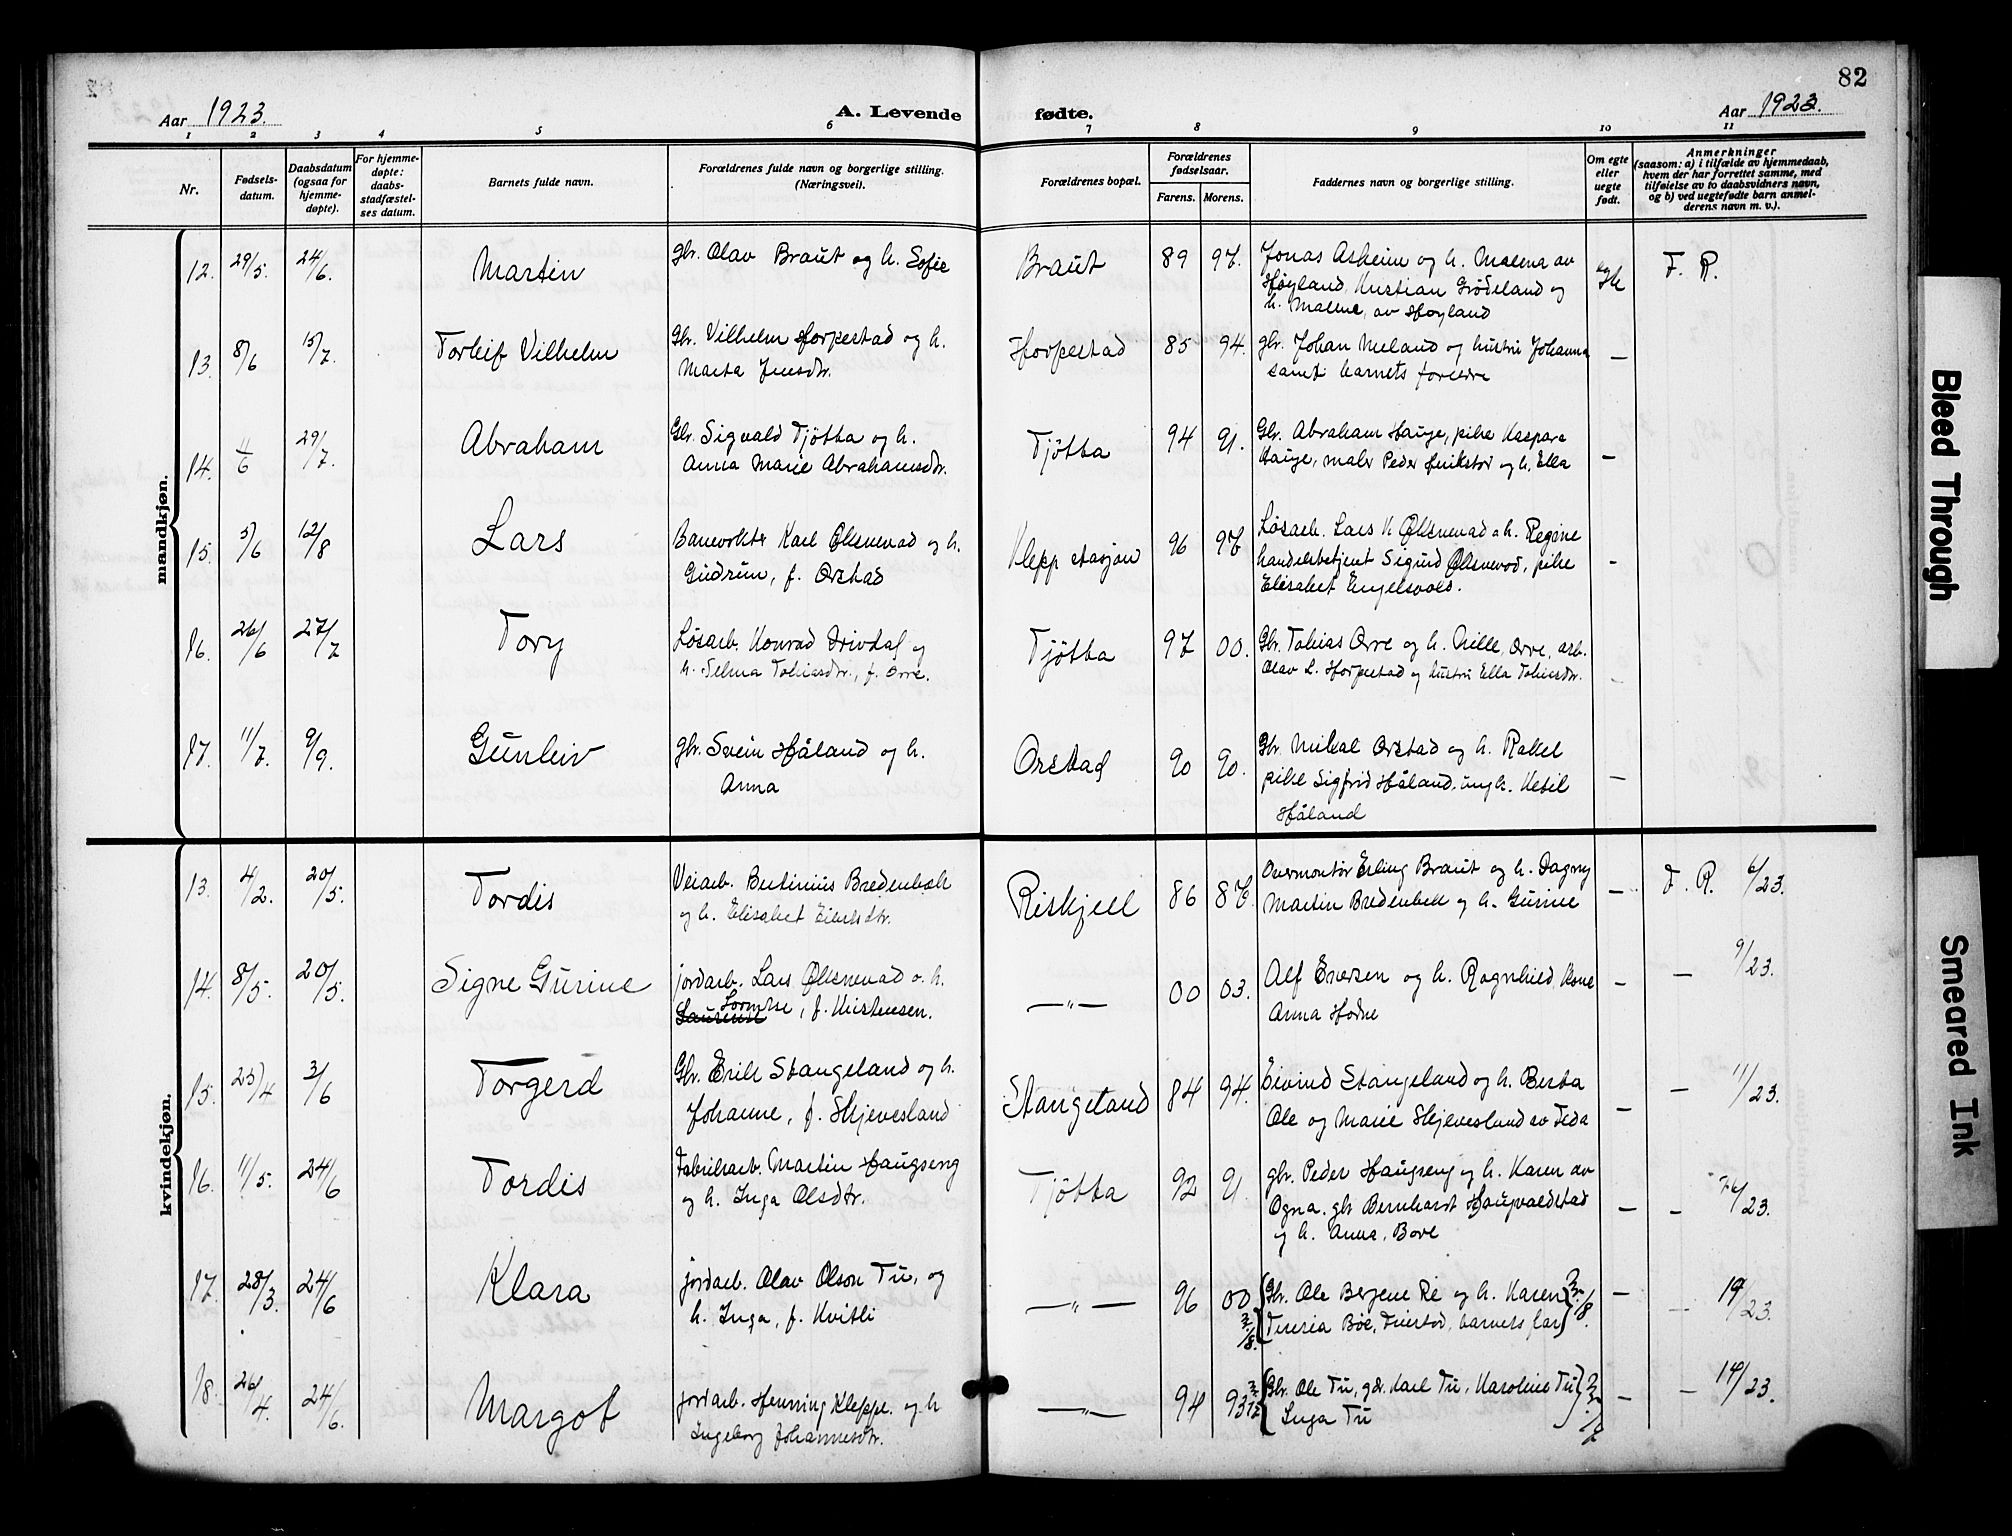 82
Aar 1923.
A. Levende fødte.
Aar 1923.
1 2 3 4 5 6 7 8 9 10 11
Nr.
Fødsels-
datum.
Daabsdatum
(ogsaa for
hjemme-
døpte).
For hjemme-
døpte:
daabs-
stadfæstel-
ses datum.
Barnets fulde navn.
Forældrenes fulde navn og borgerlige stilling.
(Næringsvei).
Forældrenes bopæl.
Forældrenes
fødselsaar.
Farens. Morens.
Faddernes navn og borgerlige stilling.
Om egte
eller
uegte
født.
Anmerkninger
(saasom: a) i tilfælde av hjemmedaab,
hvem der har forrettet samme, med
tilføielse av to daabsvidners navn,
og b) ved uegtefødte barn anmel-
derens navn m. v.).
mandkjøn.
12. 29/5. 24/6. Martin
gbr. Olav Braut og h. Sofie
Braut 89 97.
Jonas Asheim og h. Malena av
Høyland, Kristian Grødeland og
h. Malene, av Høyland
egte F. R.
13. 8/6 15/7. Torleif Vilhelm
Gbr. Vilhelm Horpestad og h.
Marta Jensdtr.
Horpestad 85 94.
gbr. Johan Meland og hustru Johanna
samt barnets foreldre
—
14. 11/6 29/7. Abraham
Gbr. Sigvald Tjøtta og h.
Anna Marie Abrahamsdtr.
Tjøtta 94 91.
Gbr. Abraham Hauge, pike Kaspara
Hauge, maler Peder og h. Ella
—
15. 5/6 12/8 Lars
Banevokter Karl Øksnevad og h.
Gudrun, f. Orstad
Klepp stasjon 96 97
Løsarb. Lars K Øksnevad o h. Regine
handelsbetjent Sigurd Øksnevad, pike
Elisabet Engelsvold.
-
16. 26/6 27/7 Tory
Løsarb. Konrad Drivdal og
h. Selma Tobiasdtr., f. Orre.
Tjøtta 97 00.
Gbr. Tobias Orre og h. Orre, arb.
Olav L. Horpestad og hustru Ella Tobiasdtr.
-
17. 11/7. 9/9. Gunleiv
gbr. Svein Håland og h.
Anna
Orstad 90 90.
Gbr. Mikal Orstad og h. Rakel
pike Sigfrid Håland. ungk. Ketil
Håland
—
kvindekjøn.
13. 4/2. 20/5. Tordis
Veiarb. Bertinius Bredenbek
og h. Elisabet Eriksdtr.
Riskjell 86 87.
Overmontør Erling Braut og h. Dagny
Martin Bredenbek og h. Gurine
— F. R. 6/23.
14. 8/5. 20/5. Signe Gurine
jordarb. Lars Øksnevad o. h.
Laurense, f. Kristensen.
—"— 00 03.
Alf Iversen og h. Ragnhild, kone
Anna Hodne
- — 9/23.
15. 25/4 3/6 Torgerd
Gbr. Erik Stangeland og h.
Johanne, f. Skjevesland
Stangeland 84 94.
Eivind Stangeland og h. Berta
Ole og Marie Skjevesland av Feda
— — 11/23.
16. 11/5. 24/6 Tordis
Fabrikarb. Martin Haugseng
og h. Inga Olsdtr.
Tjøtta 92 91
gbr. Peder Haugseng og h. Karen av
Ogna. gbr Bernhart Haugvaldstad
og h. Anna, Bore
— - /23.
17. 28/3. 24/6 Klara
jordarb. Olav Olson Tu, og
h. Inga, f. Kvitli
—"— 96 00
Gbr. Ole Bergene Re og h. Karen
Teresia Bøe, barnets far
— — 19/23.
18. 26/4. 24/6. Margot
jordarb. Henning Kleppe. og h
Ingeborg Johannesdtr.
—"— 94 93
Gbr. Ole Tu, gdr. Karl Tu, Karoline Tu
Inga Tu
— — 14/23.
Bleed Through
Smeared Ink